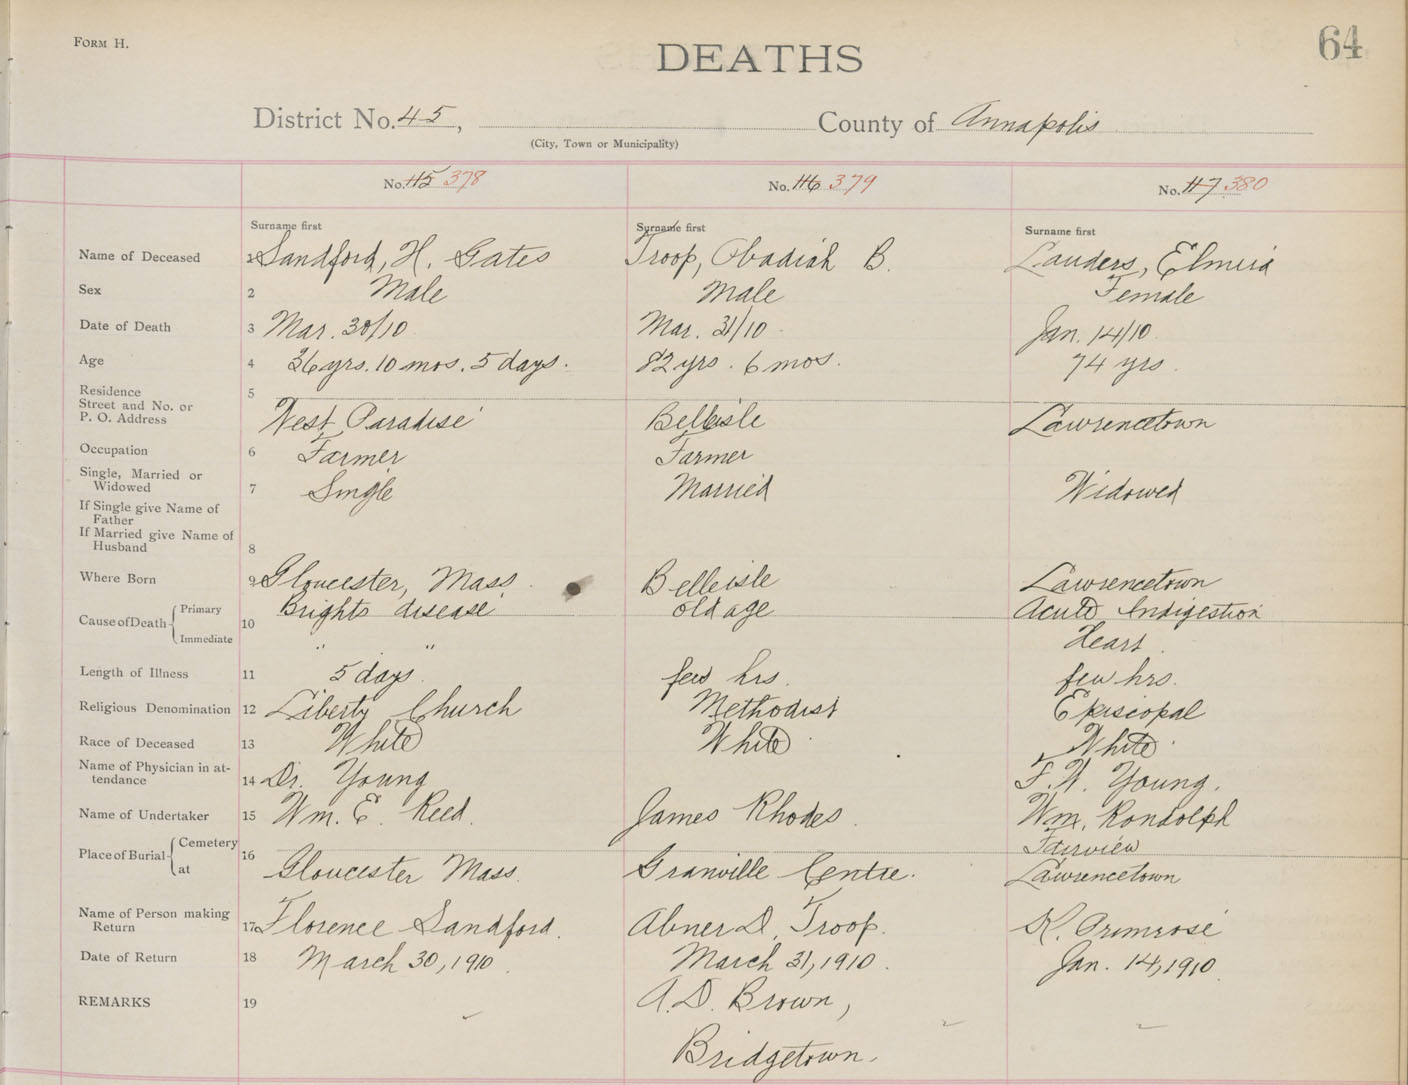 FORM H.
64
DEATHS
District No. 45, County of Annapolis
(City, Town or Municipality)
No. 115 378 No. 116 379 No. 117 380
Surname first Surname first Surname first
Name of Deceased 1 Sandford, H. Gates Troop, Obadiah B. Landers, Elmira
Sex 2 Male Male Female
Date of Death 3 Mar. 30/10 Mar. 31/10 Jan. 14/10
Age 4 36 yrs. 10 mos. 5 days. 82 yrs. 6 mos. 74 yrs.
Residence 5
Street and No. or
P. O. Address West Paradise Belleisle Lawrencetown
Occupation 6 Farmer Farmer
Single, Married or
Widowed 7 Single Married Widowed
If Single give Name of
Father
If Married give Name of
Husband 8
Where Born 9 Gloucester, Mass. Belleisle Lawrencetown
Cause of Death Primary 10 Brights disease old age Acute Indigestion
Immediate " " Heart
Length of Illness 11 5 days. few hrs. few hrs.
Religious Denomination 12 Liberty Church Methodist Episcopal
Race of Deceased 13 White White White
Name of Physician in at-
tendance 14 Dr. Young F. W. Young.
Name of Undertaker 15 Wm. E. Reed. James Rhodes. Wm. Randolph
Place of Burial Cemetery 16 Fairview
at Gloucester Mass. Granville Centre. Lawrencetown
Name of Person making
Return 17 Florence Sandford. Abner D. Troop. K. Primrose
Date of Return 18 March 30, 1910. March 31, 1910. Jan. 14, 1910
REMARKS 19 A. D. Brown,
Bridgetown.